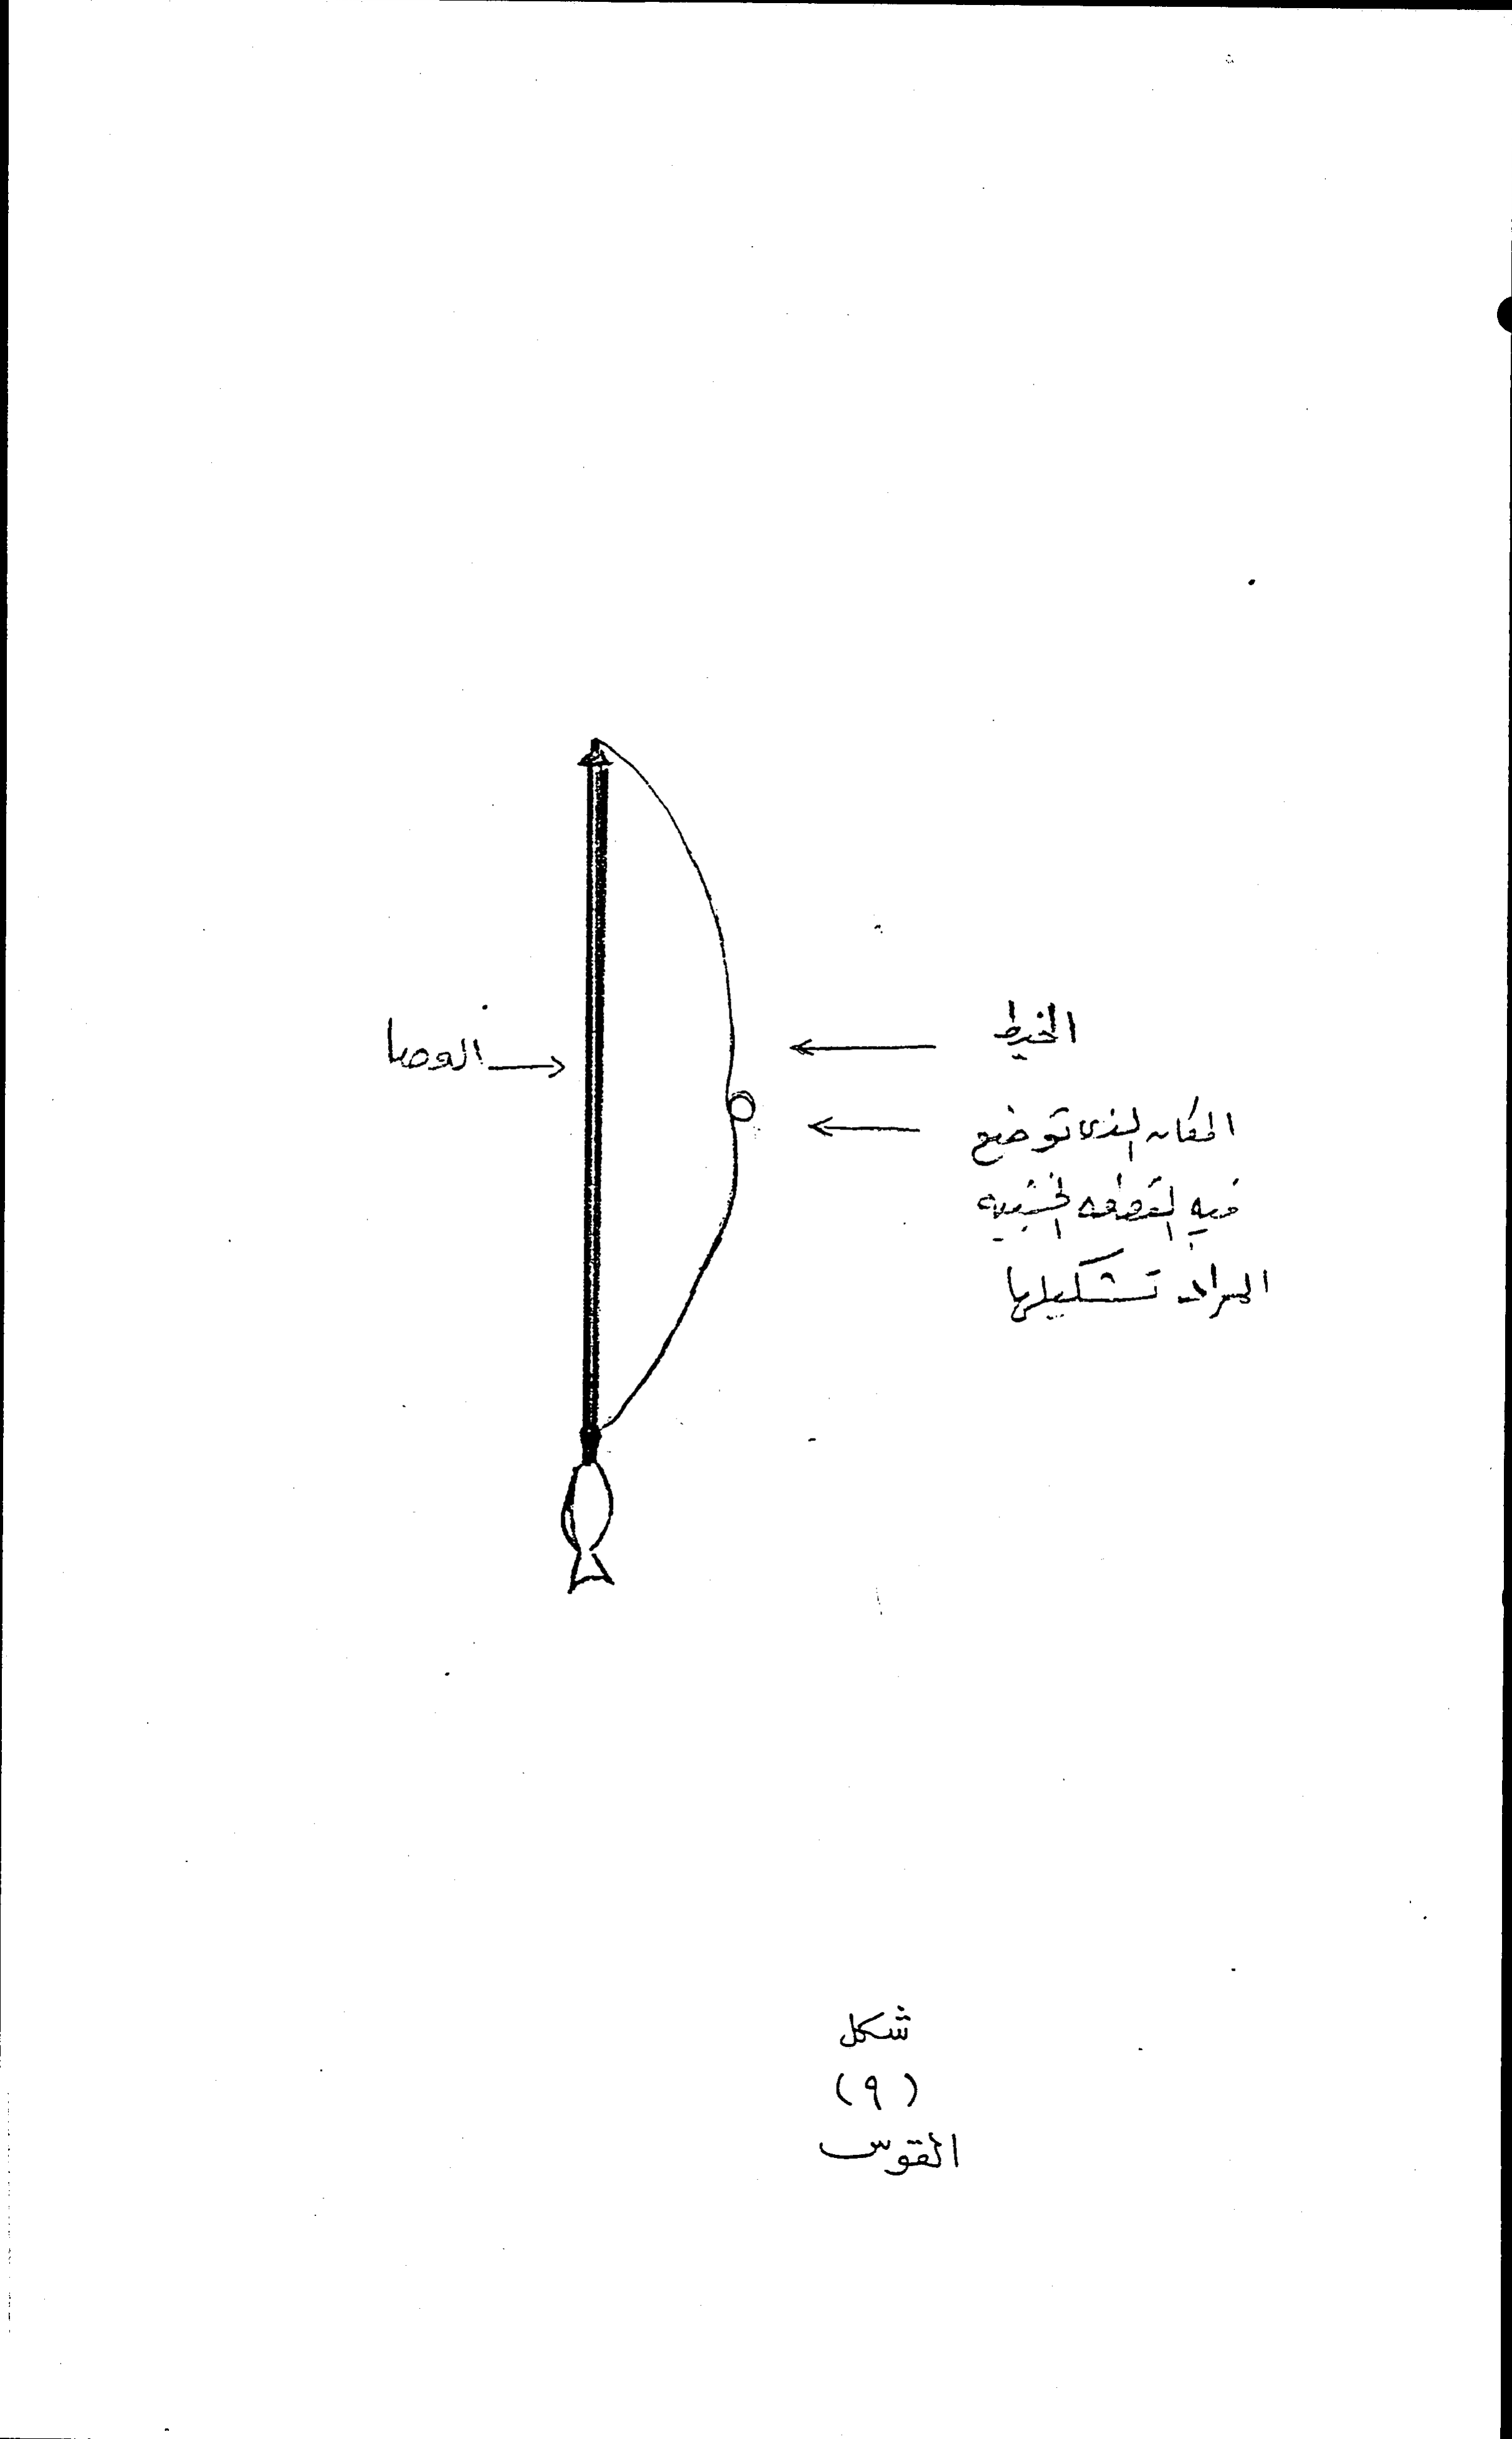 الخيط
العصا
المكان الذى توضع
فيه القطعه الخشبيه
المراد تشكيلها
شكل
(٩)
القوس